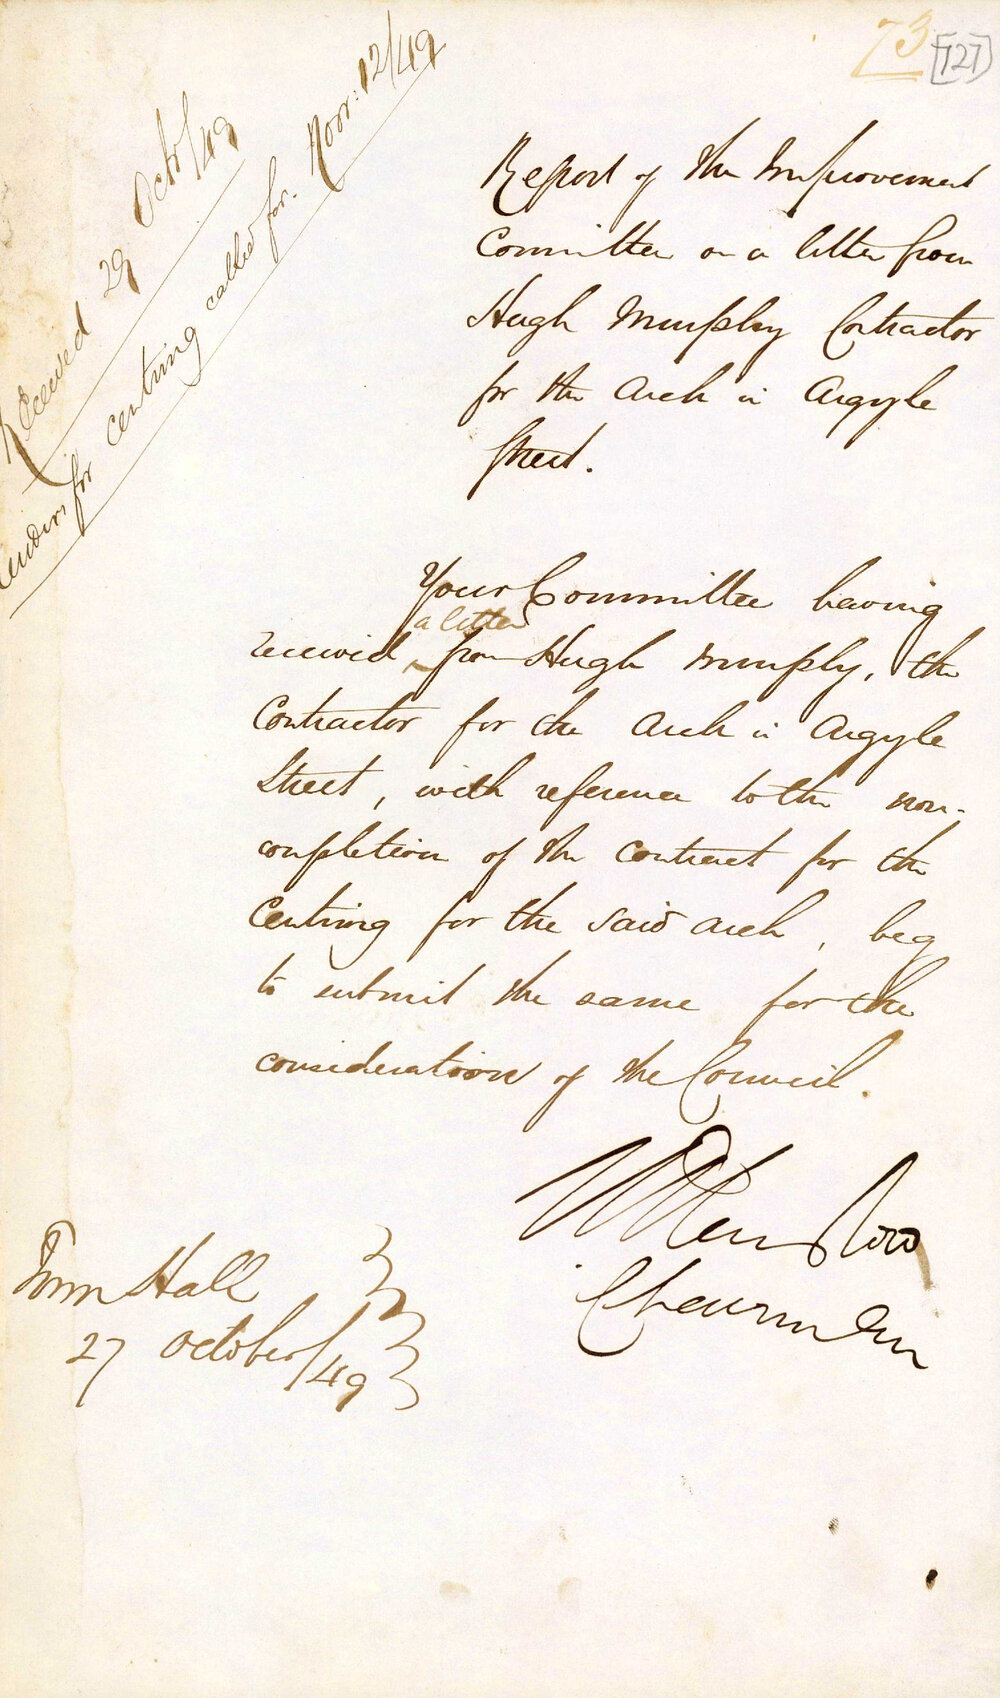 73
[127]
Received 29 Octr/49
Tenders for centring called for. Novr: 12/49
Report of the Improvement
Committee on a letter from
Hugh Murphy Contractor
for the Arch in Argyle
Street.
Your Committee having
a letter
received, from Hugh Murphy, the
Contractor for the Arch in Argyle
Street, with reference to the non-
completion of the contract for the
Centring for the said arch, beg
to submit the same for the
consideration of the Council.
Chairman
Town Hall
27 October/49